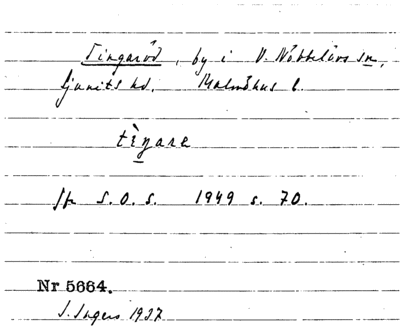 Tingaröd, by i V. Nöbbelövs sn,
Ljunits hd. Malmöhus l.
tèŋare
Jfr S.O.S. 1949 s. 70.
Nr 5664.
I. Ingers 1937